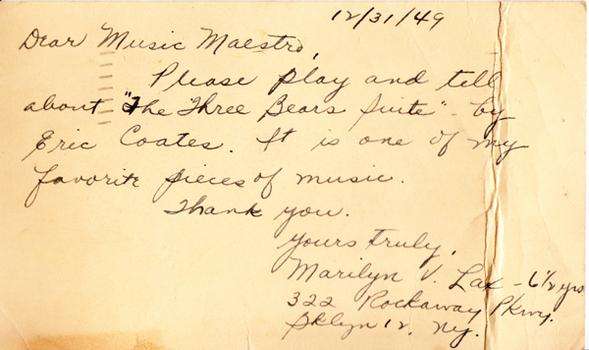 12/31/49
Dear Music Maestro,
Please play and tell
about "The Three Bears Suite" - by
Eric Coates. It is one of my
favorite pieces of music.
Thank you.
Yours truly,
Marilyn V. Lax - 6 1/2 yrs.
322 Rockaway Pkwy.
Bklyn 12, Ny.